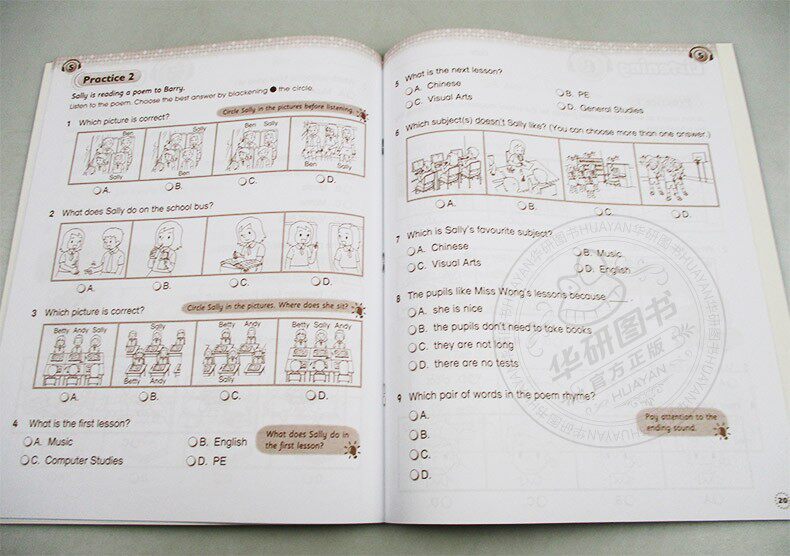 5
Practice 2
Sally is reading a poem to Barry.
Listen to the poem. Choose the best answer by blackening ● the circle.
1 Which picture is correct?
Circle Sally in the pictures before listening.
Ben Sally Ben Sally
Sally Ben Ben Sally
A. B. C. D.
2 What does Sally do on the school bus?
A. B. C. D.
3 Which picture is correct?
Circle Sally in the pictures. Where does she sit?
Betty Andy Sally Sally Betty Andy Betty Sally Andy
Betty Andy Sally
A. B. C. D.
4 What is the first lesson?
A. Music
B. English
C. Computer Studies
D. PE
What does Sally do in
the first lesson?
5
5 What is the next lesson?
A. Chinese
B. PE
C. Visual Arts
D. General Studies
6 Which subject(s) doesn't Sally like? (You can choose more than one answer.)
A. B. C. D.
7 Which is Sally's favourite subject?
A. Chinese
B. Music
C. Visual Arts
D. English
8 The pupils like Miss Wong's lessons because
A. she is nice
B. the pupils don't need to take books
C. they are not long
D. there are no tests
9 Which pair of words in the poem rhyme?
A.
B.
C.
D.
Pay attention to the
ending sound.
20
华研图书
官方正版
HUAYAN华研图书HUAYAN华研图书